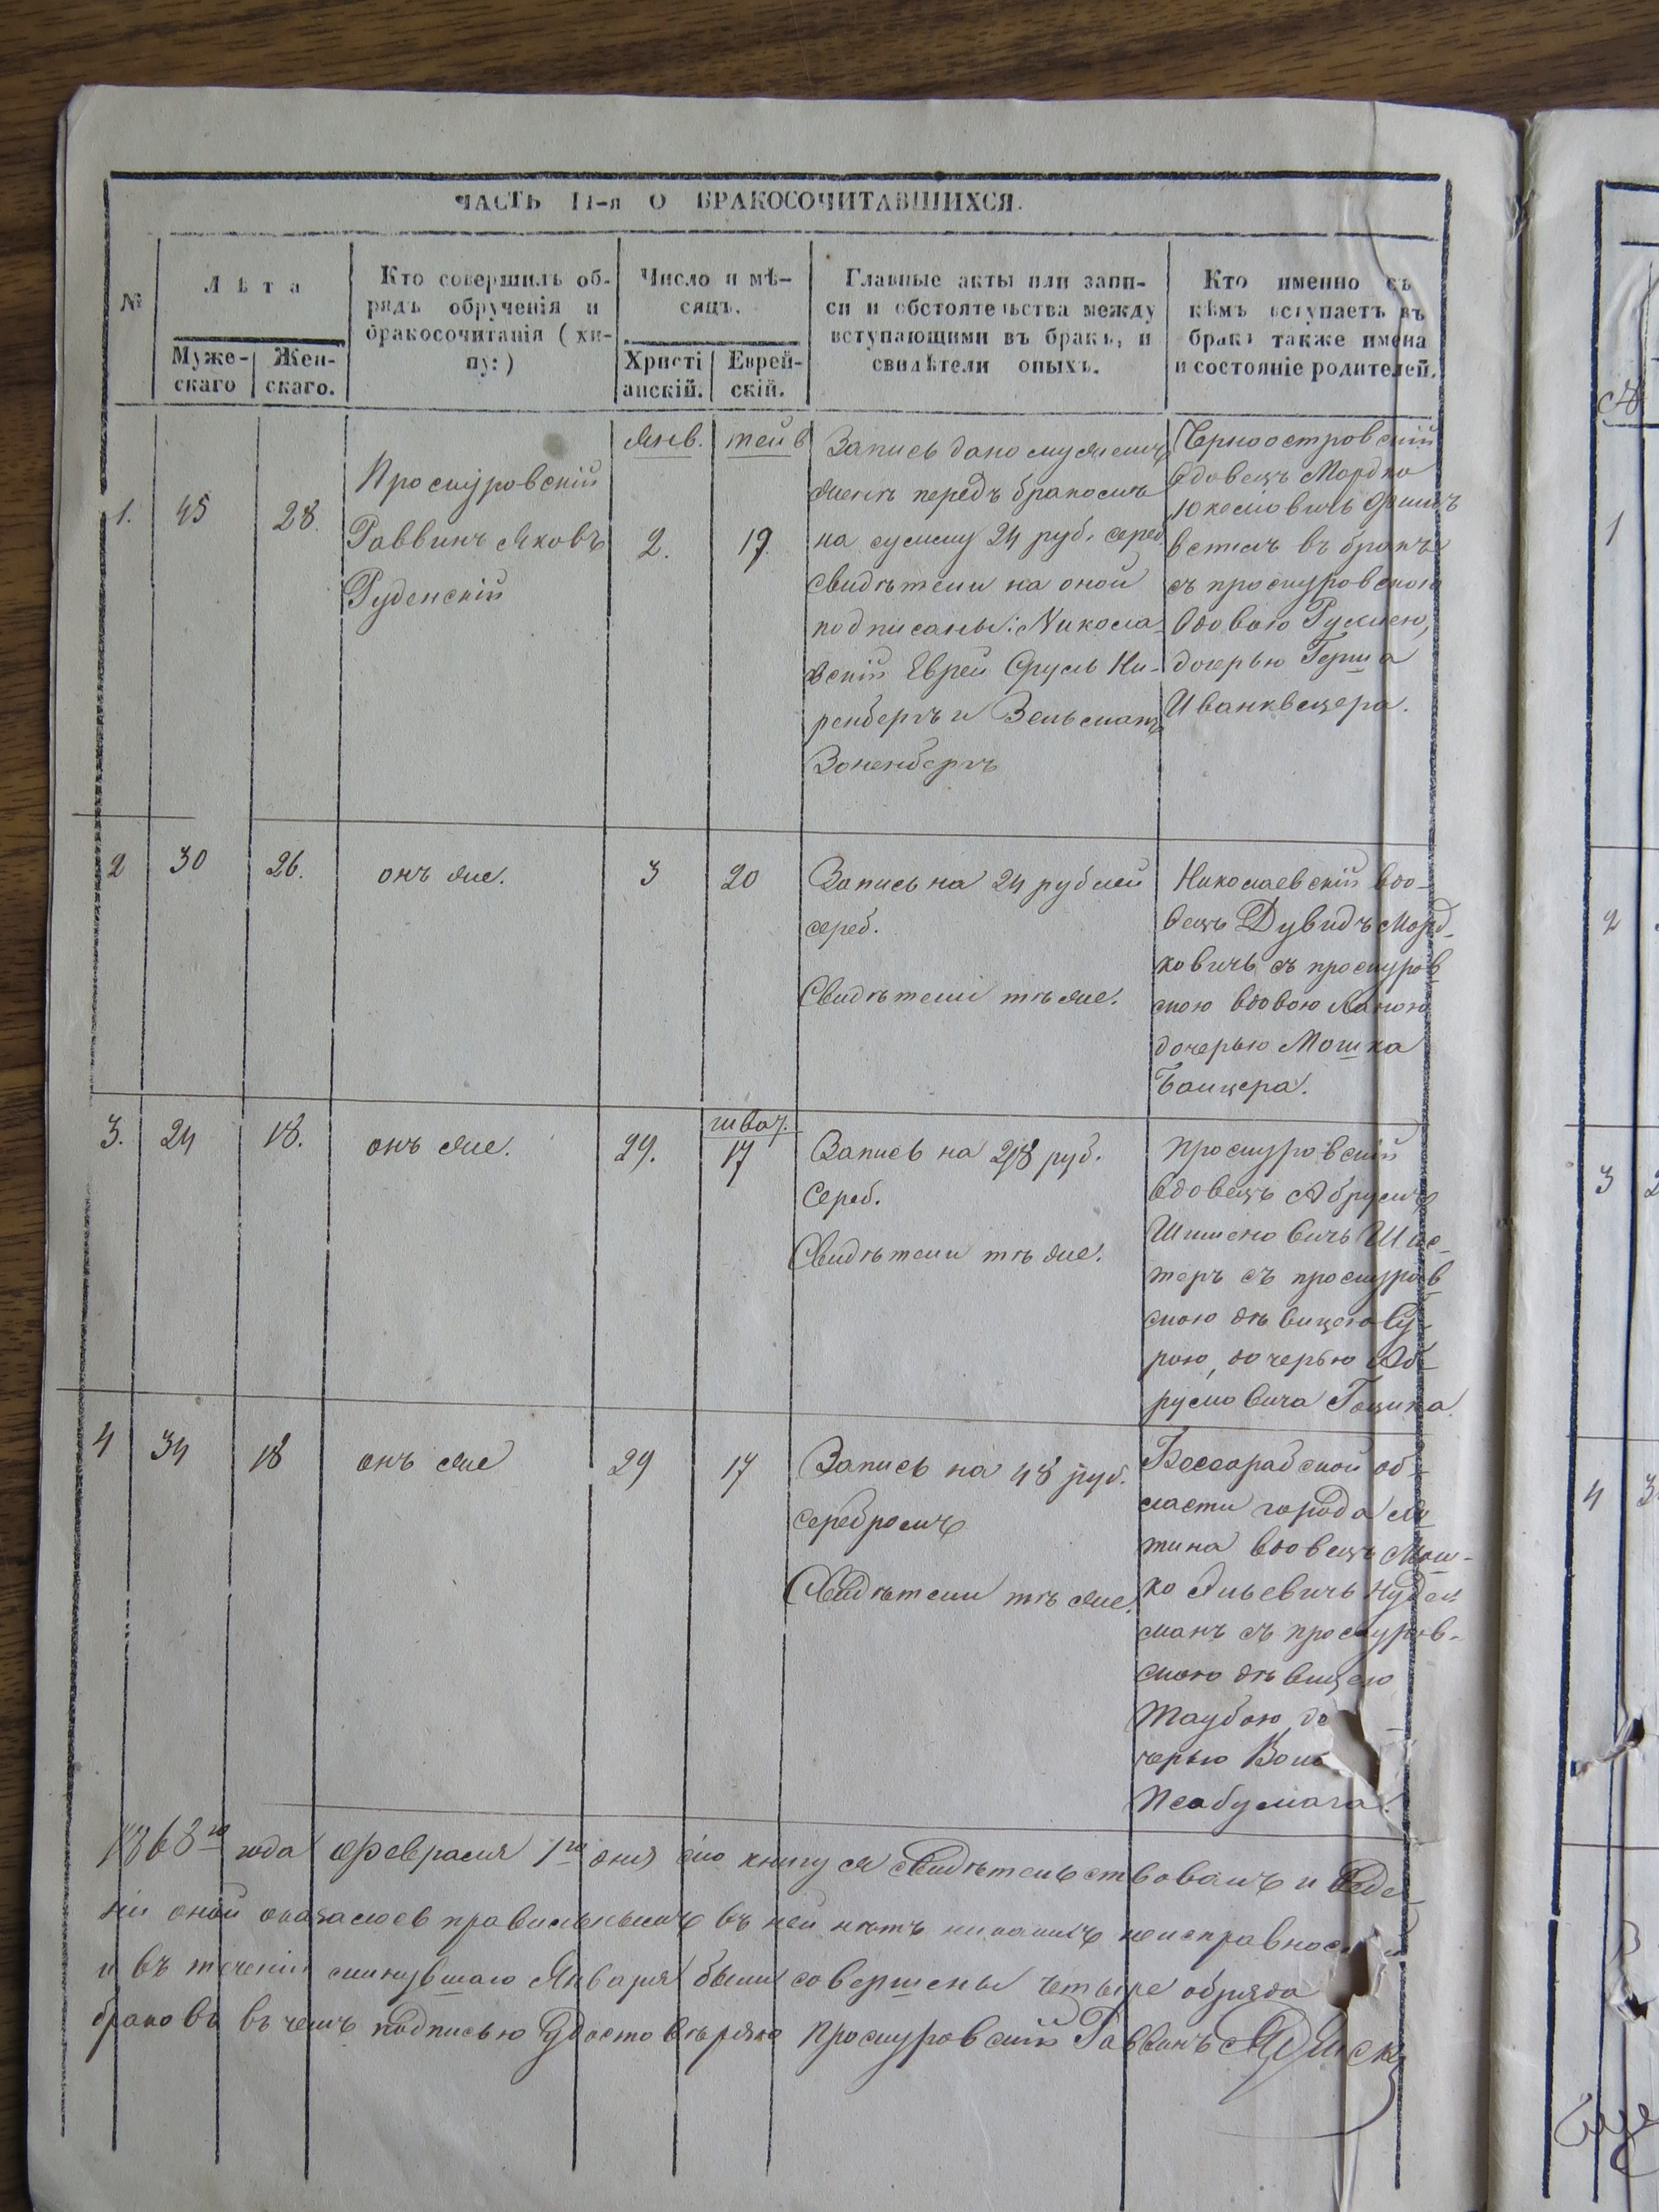 ЧАСТЬ II-я О БРАКОСОЧИТАВШИХСЯ.
№
Лѣта
Муже-
скаго
Жен-
скаго.
Кто совершилъ об-
рядъ обрученія и
бракосочитанія (хи-
пу:)
Число и мѣ-
сяцъ.
Христі
анскій.
Еврей-
скій.
Главные акты или запи-
си и обстоятельства между
вступающими въ бракъ, и
свидѣтели оныхъ.
Кто именно съ
кѣмъ вступаетъ въ
бракъ также имена
и состояніе родителей.
1.
45
28.
Проскуровскій
Раввинъ Яковъ
Руденскій
Янв.
2.
тейв
19
Запись дано мужемъ
женѣ передъ бракомъ
на сумму 24 руб. сереб
Свидѣтели на оной
подписаны: Никола-
вскій Еврей Сруль Ни-
ренбергъ и Зельманъ
Зоненбергъ
Черноостровскій
вдовецъ Мордко
вспил въ бракъ
съ проскуровскою
вдовою Рухлею,
дочерью Герша
Иванквецера.
2
30
26.
онъ же.
3
20
Запись на 24 рублей
сереб.
Свидѣтели тѣ же.
Николаевскій вдо-
вецъ Дувидъ Морд-
ковичъ съ проскуров
скою вдовою Ханою
дочерью Мошка
Балцера.
3.
24
18.
онъ же.
29.
шват.
17
Запись на 28 руб.
Сереб.
Свидѣтели тѣ же.
Проскуровскій
вдовецъ Абрумъ
Шмелювичъ Шис-
теръ съ проскуров
скою дѣвицею Су-
рою, дочерью Аб-
румовича Гоцика
4
34
18
онъ же
29
17
Запись на 48 руб.
серебромъ
Свидѣтели тѣ же.
Бессарабской об-
ласти города Хо
тина вдовецъ Мош-
ко Эльевичъ Нудел
манъ съ проскуров-
скою дѣвицею
Таубою до
черью Воль
1868го года Февраля 1го дня сію книгу я свидѣтельствовалъ и веде-
ніи оной оказалось правильнымъ въ ней нѣтъ никакихъ неисправнос
и въ теченіи минувшаго Января были совершены четыре обряда
браковъ въ чемъ подписью удостовѣряю Проскуровскій Раввинъ
1
2
3
4